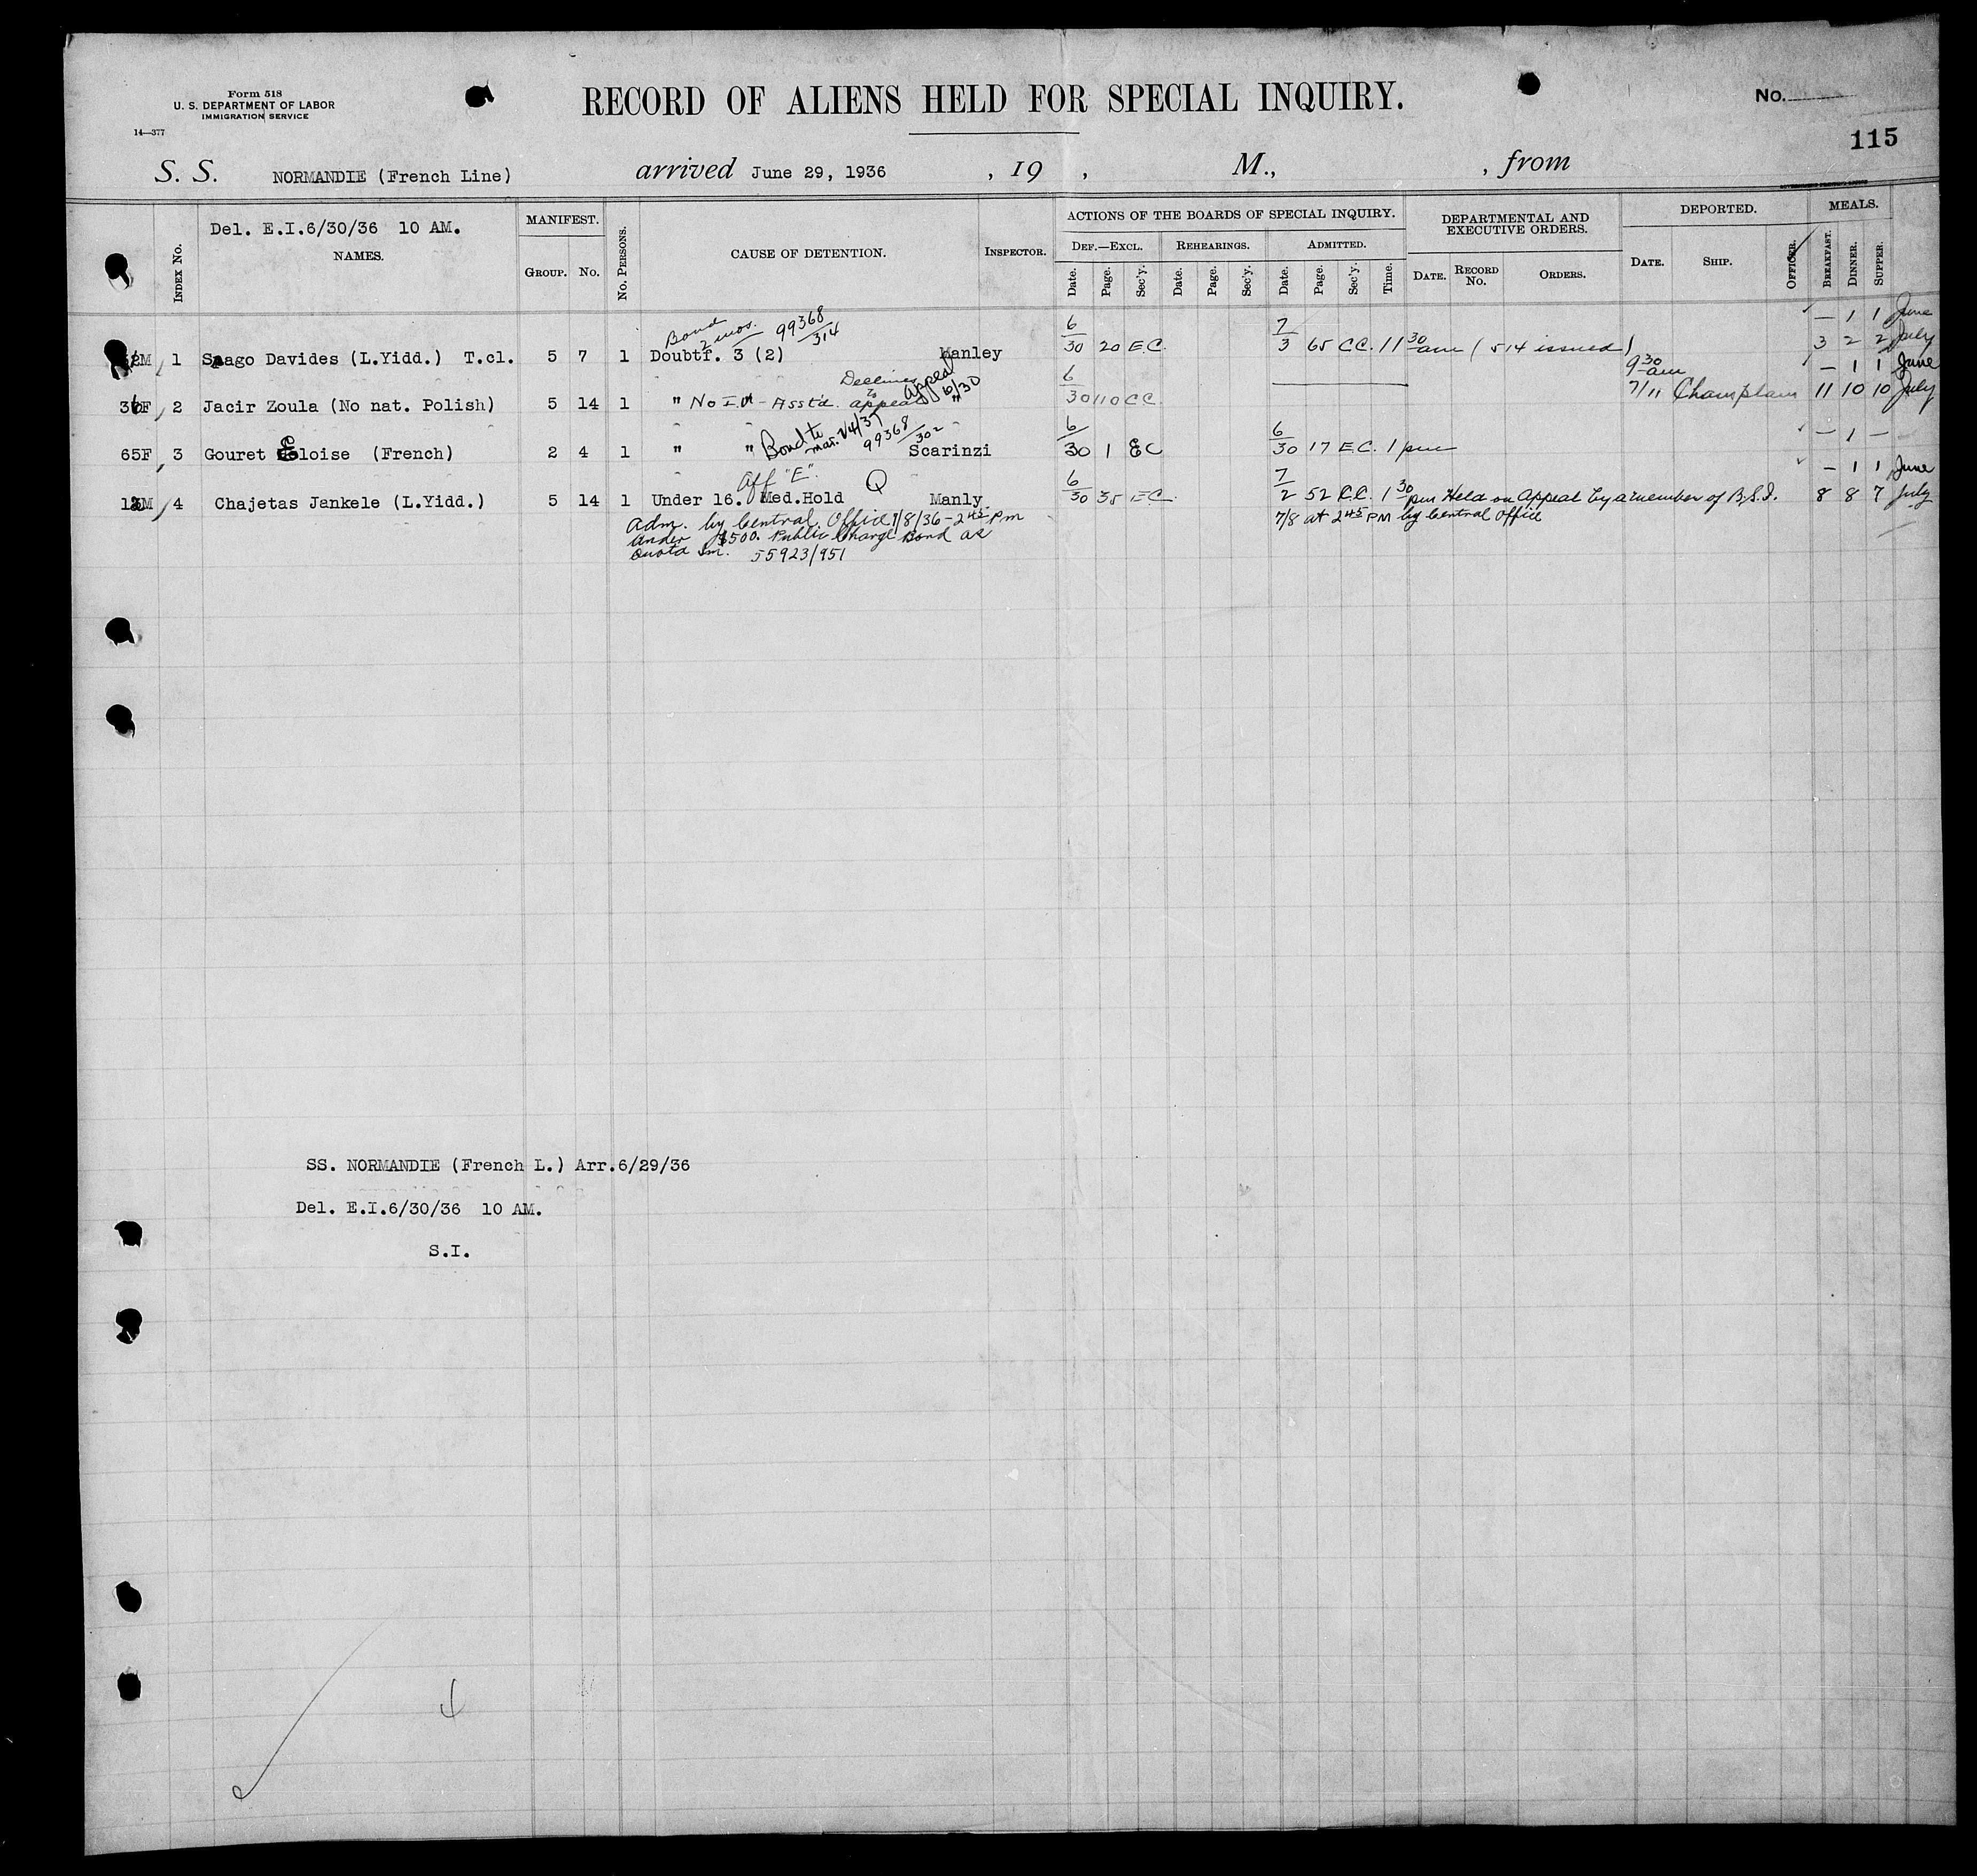 Form 518
U. S. DEPARTMENT OF LABOR
IMMIGRATION SERVICE
14—377
RECORD OF ALIENS HELD FOR SPECIAL INQUIRY.
No.
115
S. S. NORMANDIE (French Line) arrived June 29, 1936 , 19 , M., , from
Del. E.I.6/30/36 10 AM.
INDEX No. NAMES. MANIFEST. GROUP. No. No. PERSONS. CAUSE OF DETENTION. INSPECTOR.
ACTIONS OF THE BOARDS OF SPECIAL INQUIRY.
DEF.—EXCL. Date. Page. Sec'y. REHEARINGS. Date. Page. Sec'y. ADMITTED. Date. Page. Sec'y. Time.
DEPARTMENTAL AND EXECUTIVE ORDERS. DATE. RECORD No. ORDERS.
DEPORTED. DATE. SHIP. OFFICER.
MEALS. BREAKFAST. DINNER. SUPPER.
Bond 2 mos. 99368/314
— 1 1 June
1 Saago Davides (L.Yidd.) T.cl. 5 7 1 Doubtf. 3 (2) Manley 6/30 20 E.C. 7/3 65 C.C. 11 30 am (514 issued) 3 2 2 July
Declines to appeal 6/30
9 30 am — 1 1 June
36F 2 Jacir Zoula (No nat. Polish) 5 14 1 " No I.V. - Asst'd. appeal " 6/30 110 C.C. 7/11 Champlain 11 10 10 July
Bond to Mar. 24/37 99368/302
65F 3 Gouret Eloise (French) 2 4 1 " " Scarinzi 6/30 1 E.C. 6/30 17 E.C. 1 pm — 1 —
Aff "E". Q
— 1 1 June
4 Chajetas Jankele (L.Yidd.) 5 14 1 Under 16. Med.Hold Manly 6/30 35 E.C. 7/2 52 C.C. 1 30 pm Held on Appeal by a member of B.S.I. 8 8 7 July
Adm. by Central Office 7/8/36 - 2 45 PM
7/8 at 2 45 PM by Central Office
Under $500. Public Charge Bond as
Quota Im. 55923/951
SS. NORMANDIE (French L.) Arr.6/29/36
Del. E.I.6/30/36 10 AM.
S.I.
4